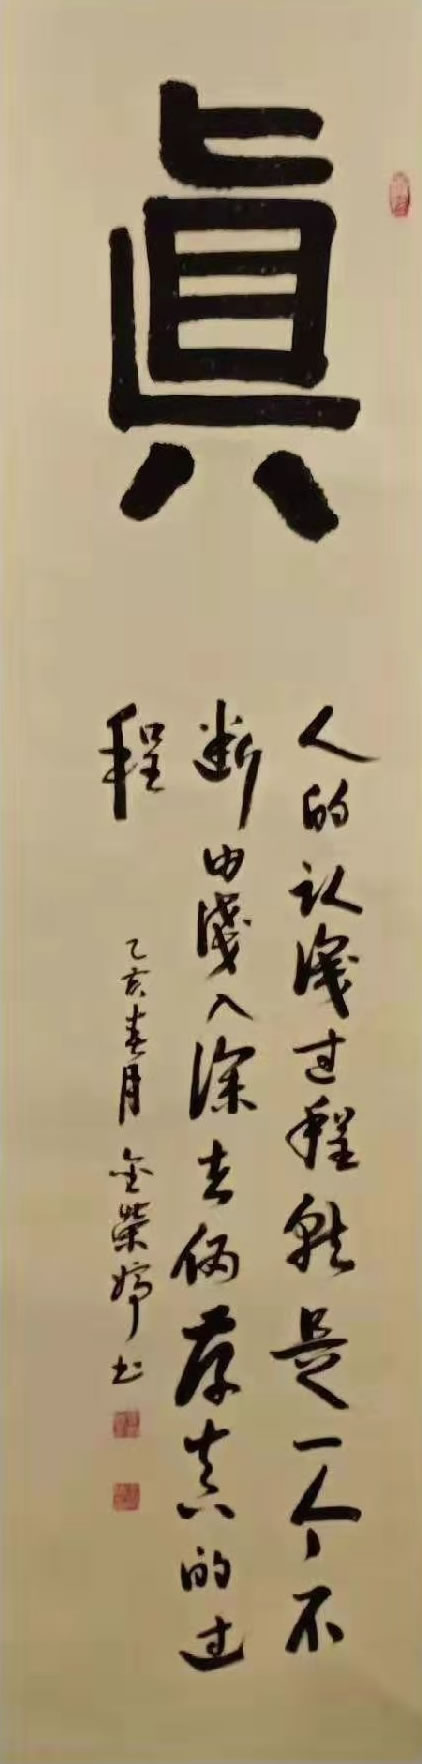 眞
人的认識过程就是一个不
断由淺入深去伪存真的过
程
乙亥春月 金榮婷书